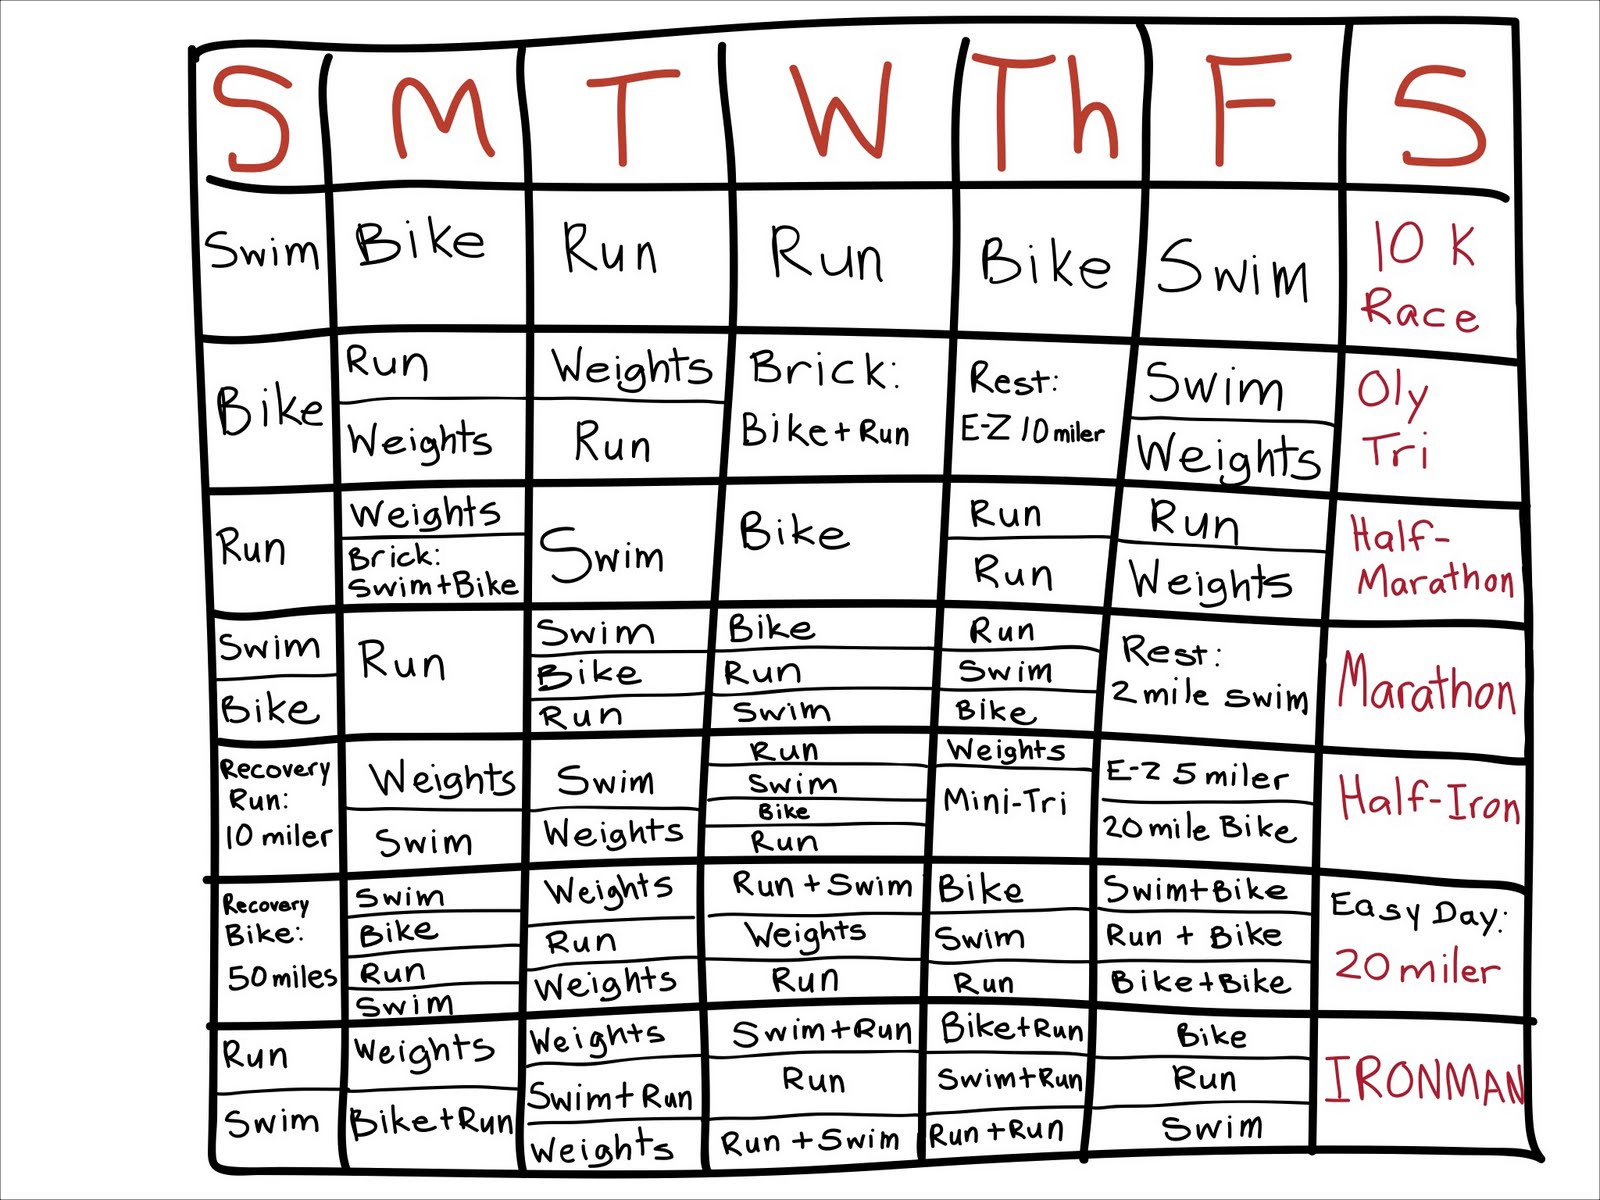 S M T W Th F S
Swim
Bike
Run
Run
Bike
Swim
10 K
Race
Bike
Run
Weights
Weights
Run
Brick:
Bike + Run
Rest:
E-Z 10 miler
Swim
Weights
Oly
Tri
Run
Weights
Brick:
Swim + Bike
Swim
Bike
Run
Run
Run
Weights
Half-
Marathon
Swim
Bike
Run
Swim
Bike
Run
Bike
Run
Swim
Run
Swim
Bike
Rest:
2 mile swim
Marathon
Recovery
Run:
10 miler
Weights
Swim
Swim
Weights
Run
Swim
Bike
Run
Weights
Mini-Tri
E-Z 5 miler
20 mile Bike
Half-Iron
Recovery
Bike:
50 miles
Swim
Bike
Run
Swim
Weights
Run
Weights
Run + Swim
Weights
Run
Bike
Swim
Run
Swim + Bike
Run + Bike
Bike + Bike
Easy Day:
20 miler
Run
Swim
Weights
Bike + Run
Weights
Swim + Run
Weights
Swim + Run
Run
Run + Swim
Bike + Run
Swim + Run
Run + Run
Bike
Run
Swim
IRONMAN